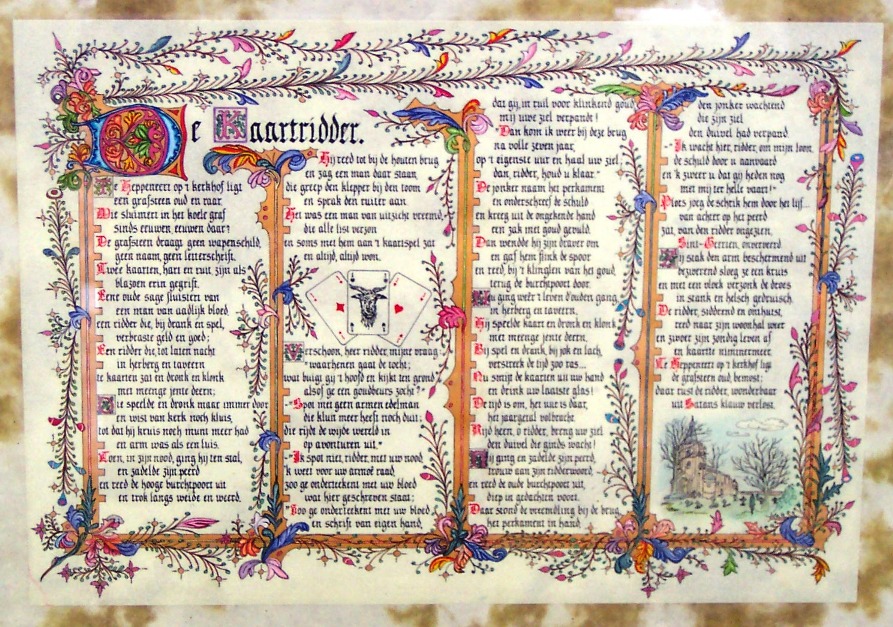 De Kaartridder.
Te Heppeneert op 't kerkhof ligt
een grafsteen oud en raar.
Wie sluimert in het koele graf
sinds eeuwen, eeuwen daar?
De grafsteen draagt geen wapenschild,
geen naam, geen letterschrift.
Twee kaarten, hart en ruit zijn als
blazoen erin gegrift.
Eene oude sage fluistert van
een man van aadlijk bloed
een ridder die, bij drank en spel,
verbraste geld en goed;
Een ridder die, tot laten nacht
in herberg en taveern
te kaarten zat en dronk en klonk
met meenge jente deern;
Hie speelde en dronk maar immer door
en wist van kerk noch kluis,
tot dat hij kruis noch munt meer had
en arm was als een luis.
Toen, in zijn nood, ging hij ten stal,
en zadelde zijn peerd
en reed de hooge burchtpoort uit
en trok langs weide en weerd.
Hij reed tot bij de houten brug
en zag een man daar staan,
die greep den klepper bij den toom
en sprak den ruiter aan.
Het was een man van uitzicht vreemd,
die alle list verzon
en soms met hem aan 't kaartspel zat
en altijd, altijd won.
"Verschoon, heer ridder, mijne vraag:
waarhenen gaat de tocht;
wat buigt gij 't hoofd en kijkt ten grond,
alsof ge een goudbeurs zocht?"
"Spot met geen armen edelman
die kluit meer heeft noch duit;
die rijdt de wijde wereld in
op avonturen uit."
"Ik spot niet, ridder, met uw nood,
'k weet voor uw armoê raad,
zoo ge onderteekent met uw bloed
wat hier geschreven staat:
"Zoo ge onderteekent met uw bloed,
en schrift van eigen hand,
dat gij, in ruil voor klinkend goud
mij uwe ziel verpande!
"Dan kom ik weer bij deze brug
na volle zeven jaar,
op 't eigenste uur en haal uw ziel,
dan, ridder, houd u klaar."
De jonker naam het perkament
en onderschreef de schuld
en kreeg uit de ongekende hand
een zak met goud gevuld.
Dan wendde hij zijn draver om
en gaf hem flink de spoor
en reed, bij 't klinglen van het goud,
terug de burchtpoort door.
Nu ging weer 't leven d'ouden gang,
in herberg en taveern,
Hij speelde kaart en dronk en klonk
met meenge jente deern.
Bij spel en drank, bij jok en lach,
verstreek de tijd zoo ras...
Nu smijt de kaarten uit uw hand
en drink uw laatste glas!
De tijd is om, het uur is daar,
het jaargetal volbracht
Rijd heen, o ridder, breng uw ziel
den duivel die ginds wacht!
Hij ging en zadelde zijn peerd,
trouw aan zijn ridderwoord,
en reed de oude burchtpoort uit,
diep in gedachten voort.
Daar stond de vreemdling bij de brug,
het perkament in hand,
den jonker wachtend
die zijn ziel
den duivel had verpand.
"Ik wacht hier, ridder, om mijn loon,
de schuld door u aanvaard
en 'k zweer u dat gij heden nog
met mij ter helle vaart!"
Plots joeg de schrik hem door het lijf...
van achter op het peerd
zat, van den ridder ongezien,
Sint-Gerrien, onverveerd
Hij stak den arm beschermend uit
bezwerend sloeg ze een kruis
en met een vloek verzonk de droes
in stank en helsch gedruisch.
De ridder, sidderend en onthutst,
reed naar zijn woonhal weer
en zwoer zijn zondig leven af
en kaartte nimmermeer.
Te Heppeneert op 't kerkhof ligt
de grafsteen oud, bemost;
daar rust de ridder, wonderbaar
uit Satans klauw verlost.